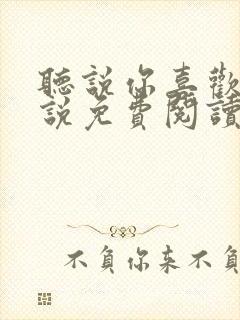 聽說你喜歡
說免費閱讀
不負你來不負